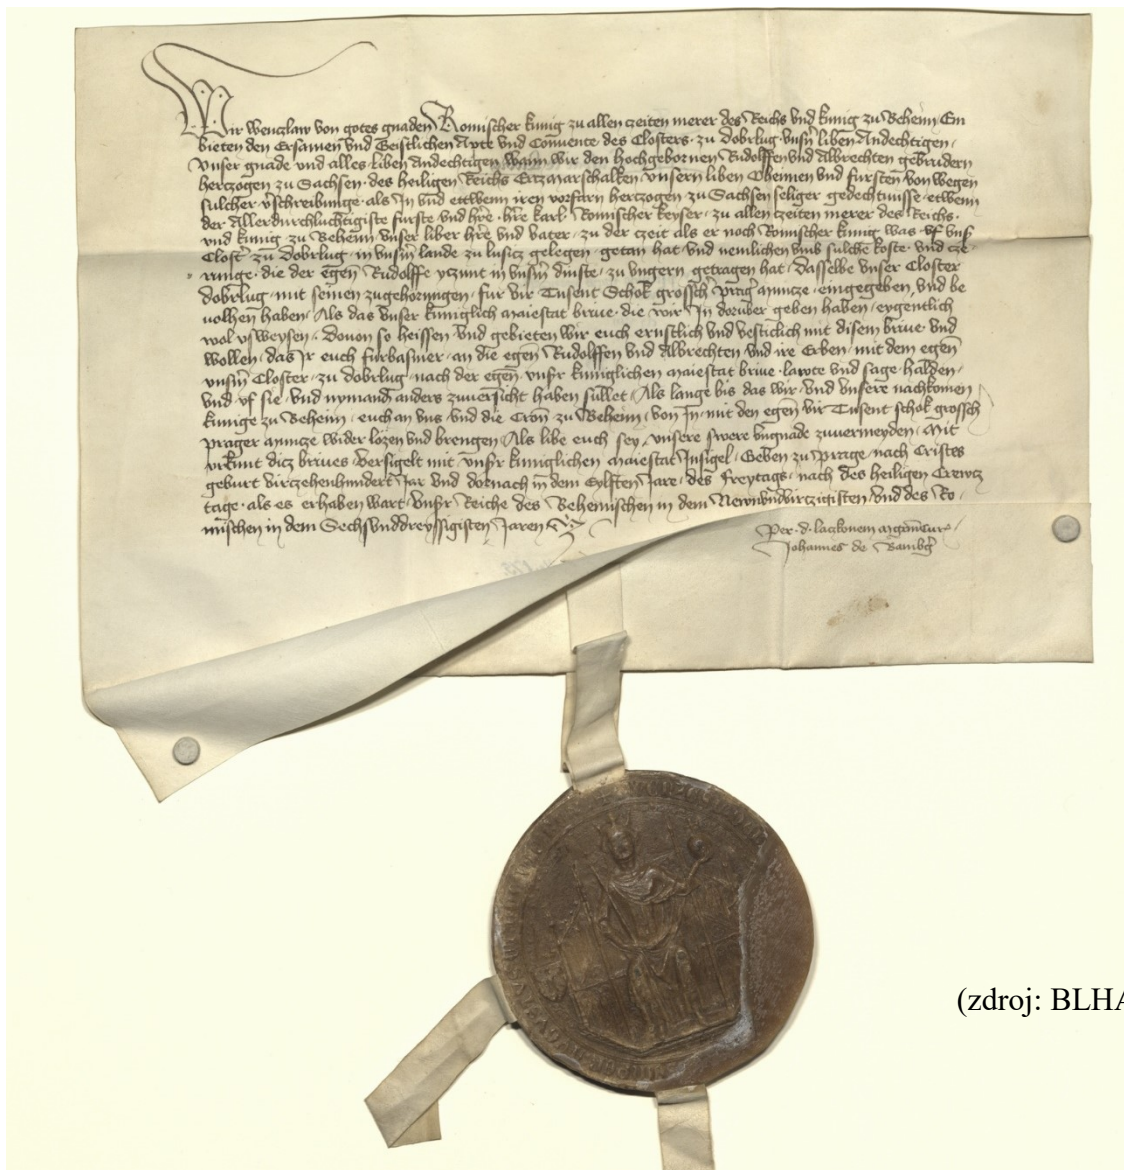 Wir Wenczlaw von gotes gnaden Romischer kunig zu allen czeiten merer des Reichs vnd kunig zu Beheim Em
bieten den Ersamen vnd Geistlichen Apte vnd Conuente des Closters zu Dobrlug vnsn liben Andechtigen
vnser gnade vnd alles liben Andechtigen wann wir den hochgebornen Rudolffen vnd Albrechten gebrudern
hertzogen zu Sachsen des heiligen Reichs Ertzmarschalken vnsern liben Oheimen vnd fursten von wegen
sulcher vschreibunge als In vnd ettwenn iren vorfarn hertzogen zu Sachsen seliger gedechtnisse ettwenn
der Allerdurchluchtigiste furste vnd hre hre karl Romischer keyser zu allen czeiten merer des Reichs
vnd kunig zu Beheim vnser liber hre vnd vater zu der czeit als er noch Romischer kunig was vf vns
Closter zu Dobrlug in vnsm lande zu lusicz gelegen getan hat vnd nemlichen vmb sulche koste vnd cze
runge die der egen Rudolffe yczunt in vnsm dinste zu vngern getragen hat dasselbe vnser Closter
dobrlug mit seinen zugehorungen fur vir Tusent Schok grossch prager muncze eingegeben vnd be
uolhen haben Als das vnser kuniglich maiestat briue die wir In doruber geben haben eygentlich
wol vsweysen Douon so heissen vnd gebieten wir euch ernstlich vnd vesticlich mit disem briue vnd
wollen das Ir euch furbasmer an die egen Rudolffen vnd Albrechten vnd ire Erben mit dem egen
vnsm Closter zu dobrlug nach der egen vnsr kuniglichen maiestat briue lawte vnd sage halden
vnd vf sie vnd nymand anders zuuersicht haben sullet Als lange bis das wir vnd vnsere nachkomen
kunige zu Beheim euch an vns vnd die Cron zu Beheim von In mit den egen vir Tusent schok grossch
prager muncze wider lozen vnd brengen Als libe euch sey vnsere swere vngnade zuuermeyden Mit
vrkunt dicz briues versigelt mit vnsr kuniglichen maiestat Insigel Geben zu prage nach Cristes
geburt virczehenhundert Jar vnd dornach in dem Eylften Jare des freytags nach des heiligen Crewcz
tage als es erhaben wart vnsr Reiche des Behemischen in dem Newnvndvirczigisten vnd des Ro
mischen in dem Sechsvnddreyssigisten Jaren
Per d laczkonem
Johannes de Bambg
(zdroj: BLHA